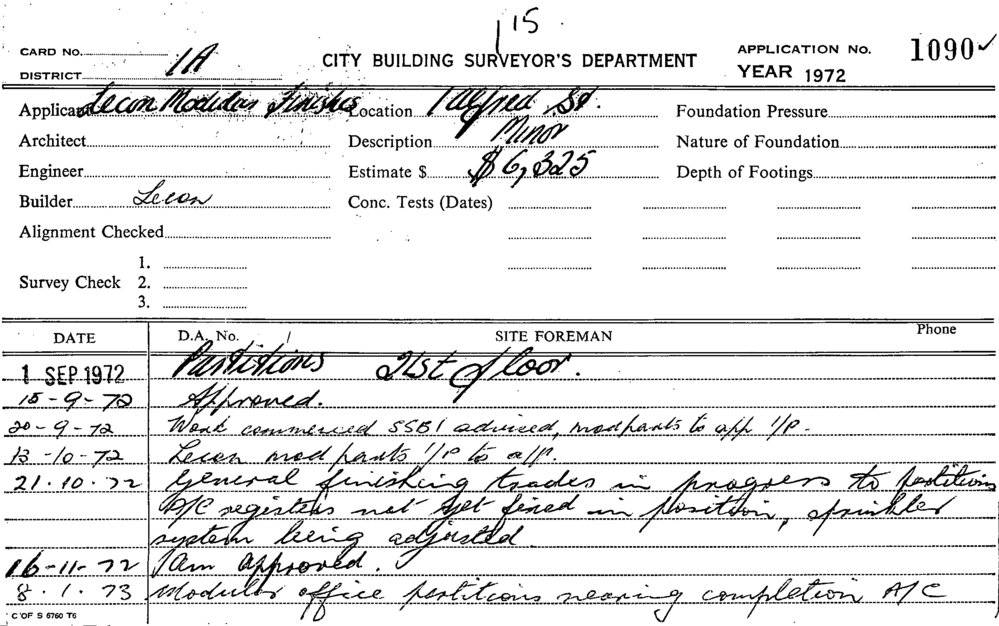 15
CARD No. 1A
CITY BUILDING SURVEYOR'S DEPARTMENT
APPLICATION No. 1090 ✓
DISTRICT
YEAR 1972
Applicant Lecon Modular Finishes Location 1 Alfred St. Foundation Pressure
Architect Description Minor Nature of Foundation
Engineer Estimate $ $6,325 Depth of Footings
Builder Lecon Conc. Tests (Dates)
Alignment Checked
1.
Survey Check 2.
3.
DATE D.A. No. SITE FOREMAN Phone
1 SEP 1972 Partitions 21st floor.
15-9-72 Approved.
20-9-72 Work commenced SSBI advised, mod parts to app I/P.
13-10-72 Lecon mod parts I/P to a/p.
21.10.72 General finishing trades in progress to partitions
A/C registers not yet fixed in position, sprinkler
system being adjusted.
16-11-72 1Am approved.
8.1.73 Modular office partitions nearing completion A/C
C OF S 6760 T6